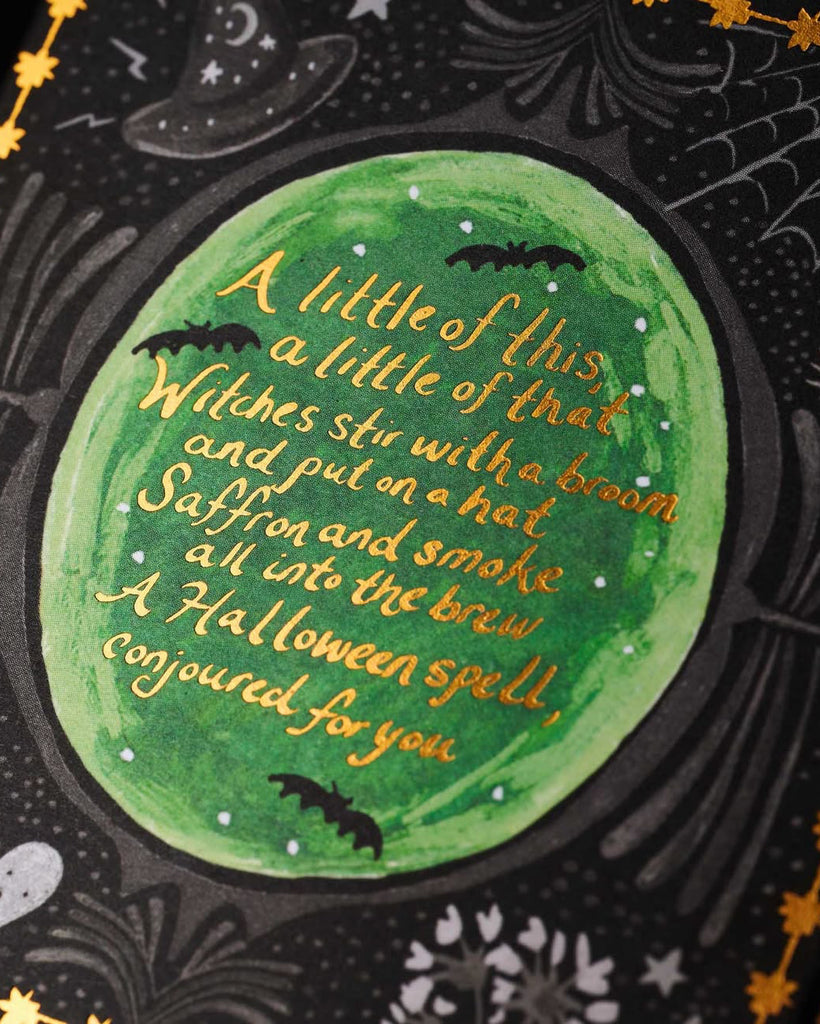 A little of this,
a little of that
Witches stir with a broom
and put on a hat
Saffron and smoke
all into the brew
A Halloween spell,
conjoured for you